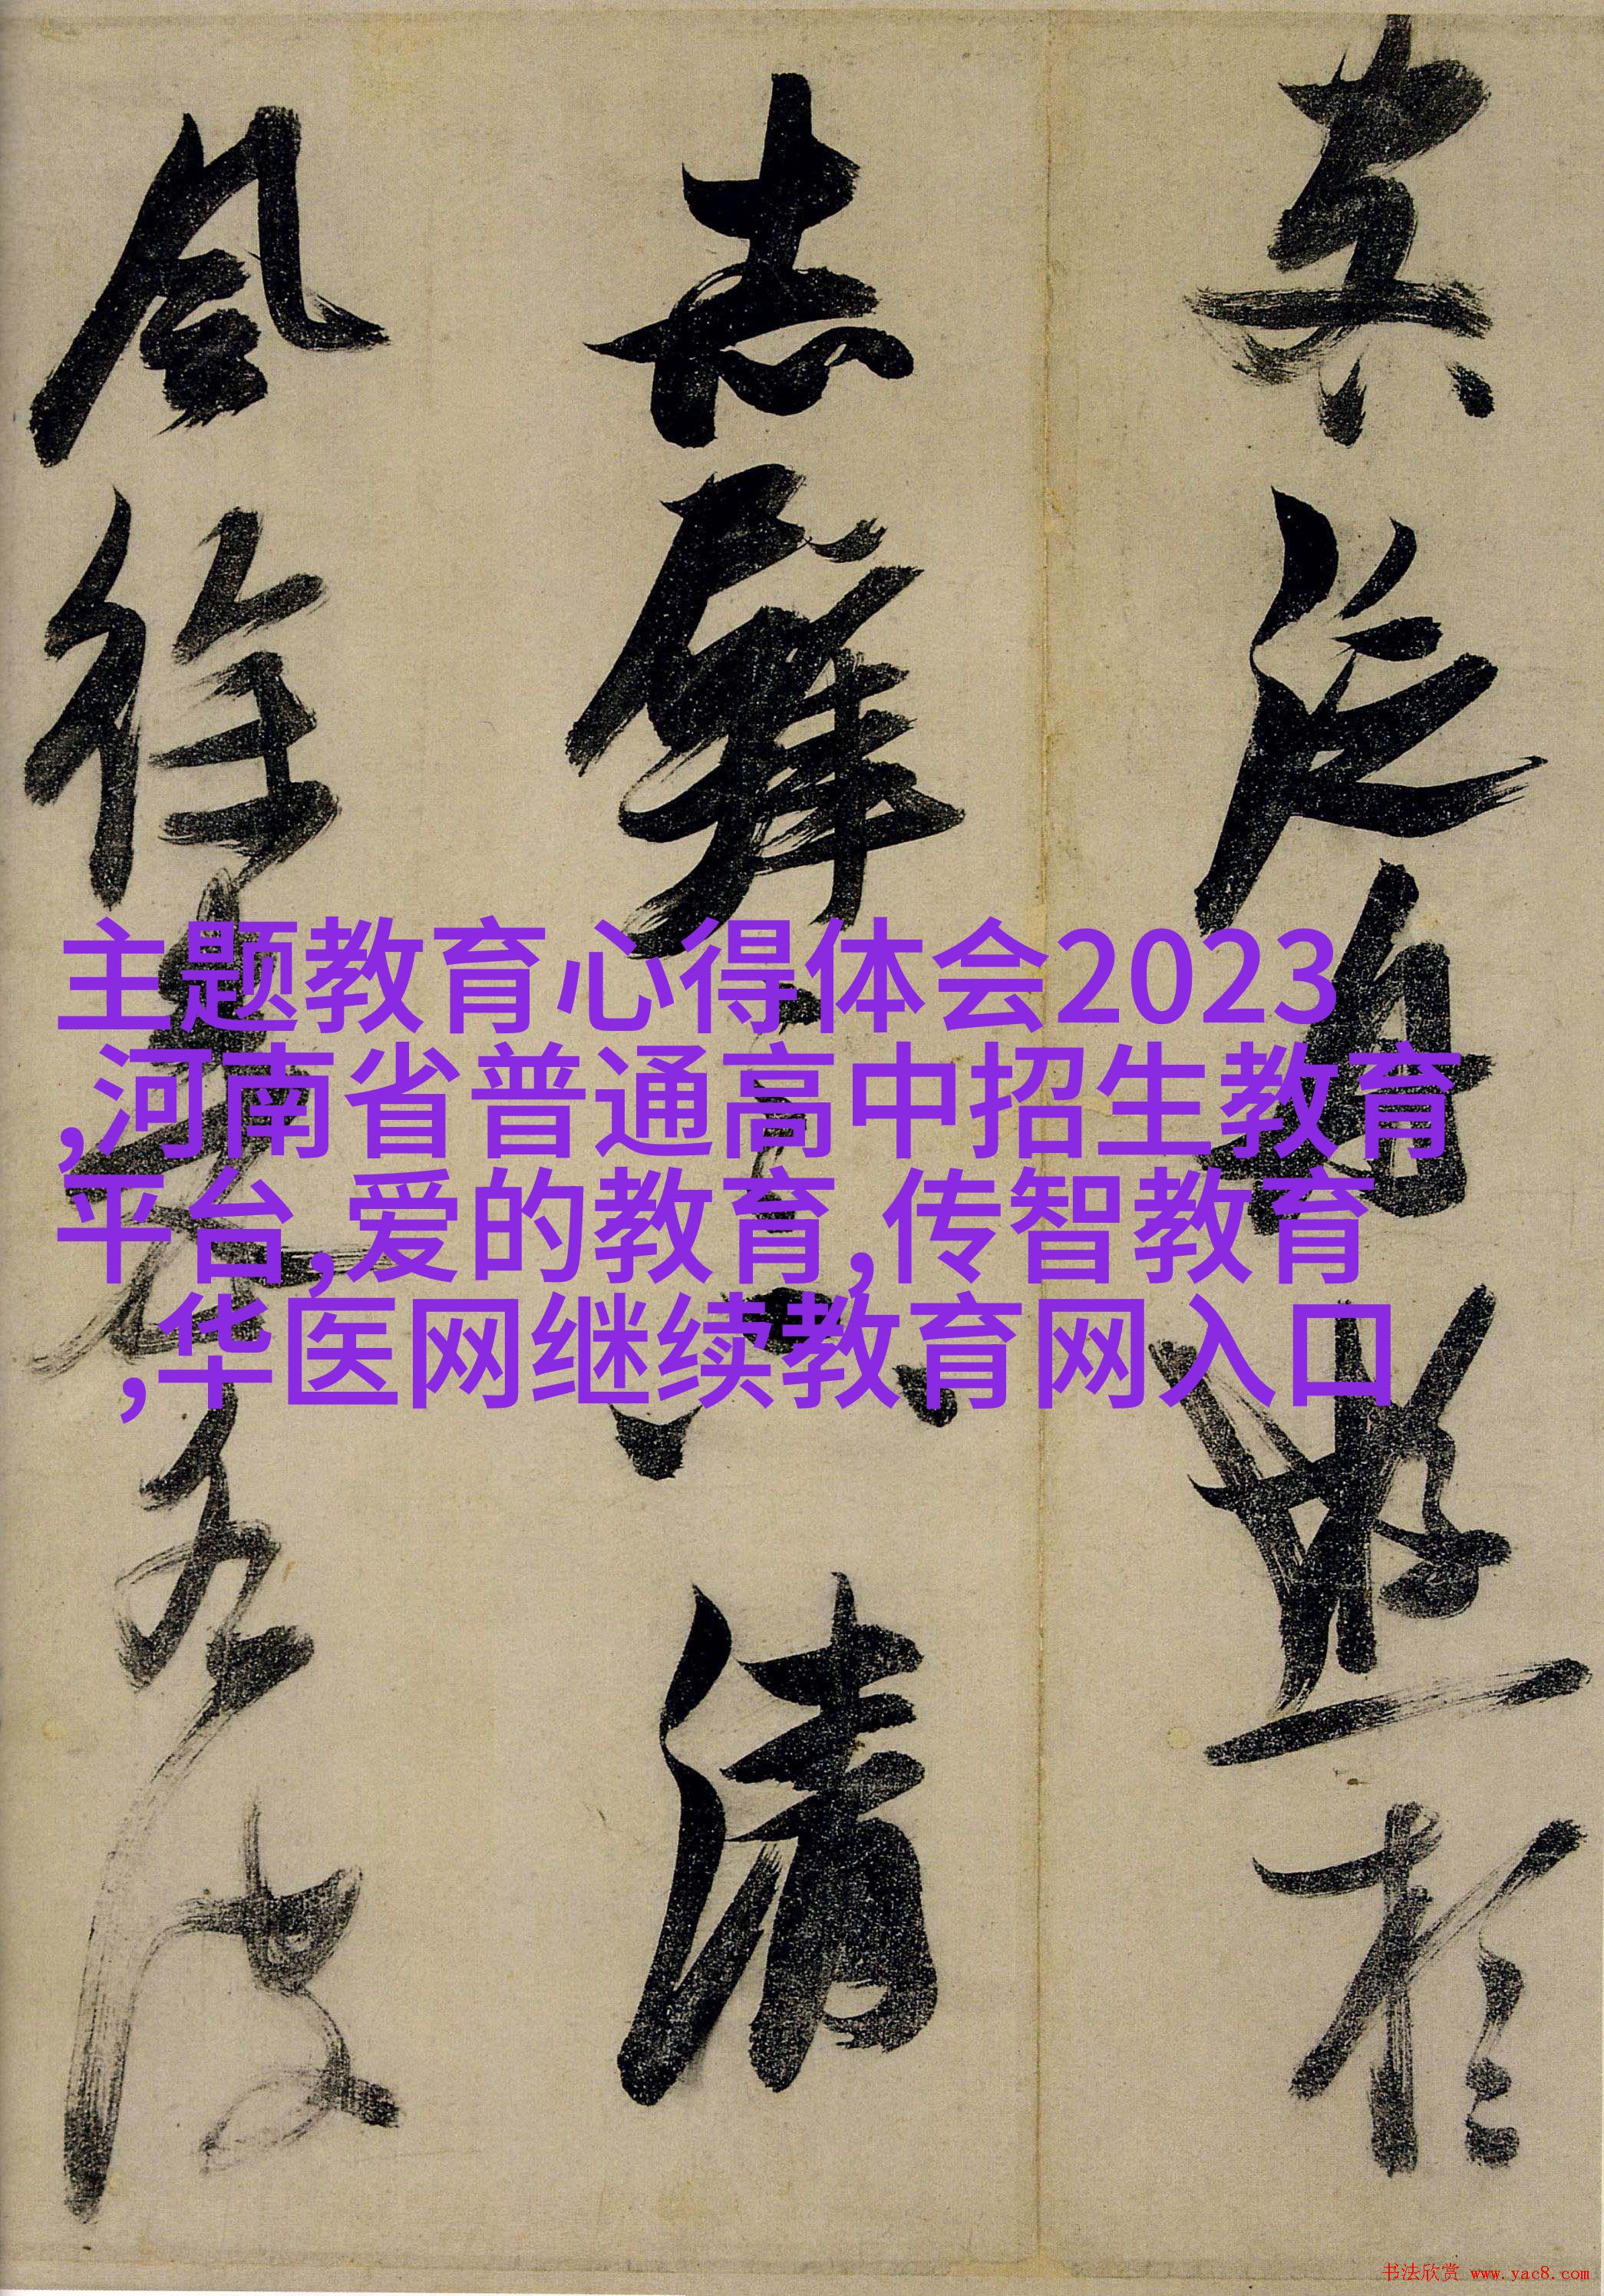 泛舟遊於
赤壁之下清
風徐來水波
主题教育心得体会2023
,河南省普通高中招生教育
平台,爱的教育,传智教育
,华医网继续教育网入口
书法欣赏 www.yac8.com